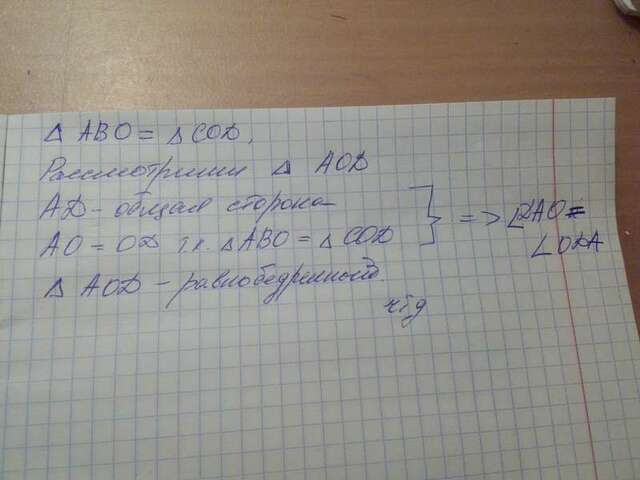 △ ABO = △ COD,
Рассмотрим △ AOD
AD - общая сторона
AO = OD т.к. △ ABO = △ COD } => ∠DAO =
∠ODA
△ AOD - равнобедренный.
чтд